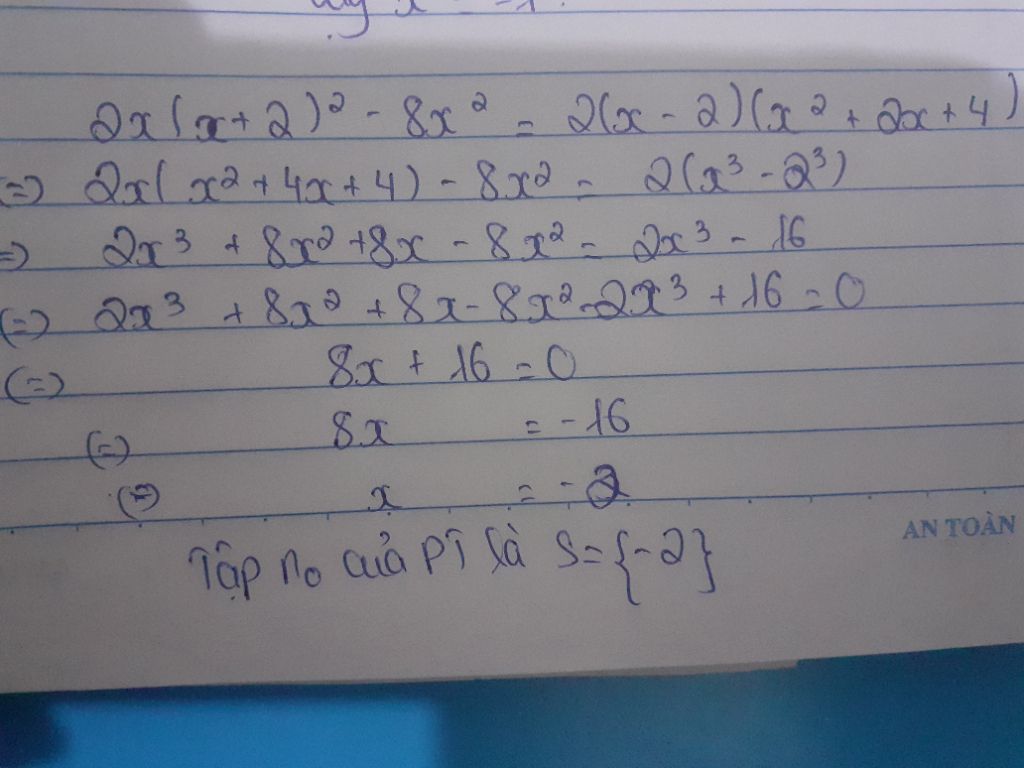 2x(x+2)² - 8x² = 2(x-2)(x²+2x+4)
(=) 2x(x²+4x+4) - 8x² = 2(x³-2³)
=) 2x³ + 8x² +8x - 8x² = 2x³ - 16
(=) 2x³ + 8x² +8x - 8x² -2x³ +16 = 0
(=) 8x + 16 = 0
(=) 8x = -16
(=) x = -2
AN TOÀN
Tập no của PT là S={-2}